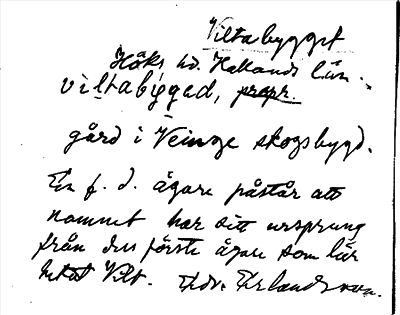 Viltabygget
Höks hd. Hallands län.
viltabygged, propr.
gård i Veinge skogsbygd.
En f. d. ägare påstår att
namnet har sitt ursprung
från den förste ägare som lär
hetat Vilt. Edv. Erlandsson.